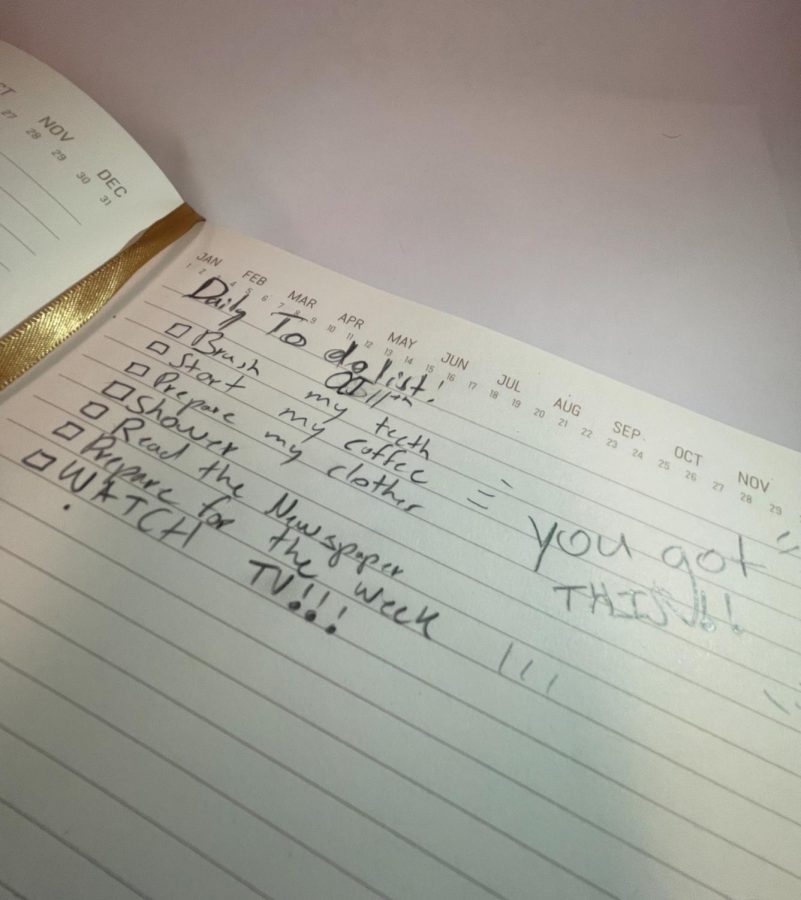 CT NOV DEC
27 28 29 30 31
JAN FEB MAR APR MAY JUN JUL AUG SEP OCT NOV
1 2 4 5 6 7 8 9 10 11 12 13 14 15 16 17 18 19 20 21 22 23 24 25 26 27 28 29
Daily To do list!
Brush my teeth
Start my coffee
Prepare my clothes
Shower
Read the Newspaper
Prepare for the week
WATCH TV!!!
you got
THIS!!